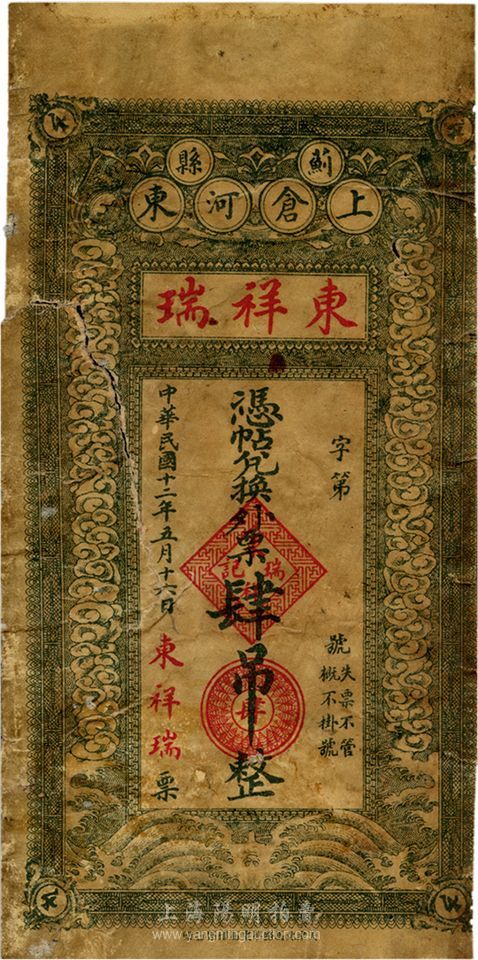 薊縣
上倉河東
東祥瑞
字第
號失票不管
概不掛號
憑帖兌換外票肆吊整
瑞記
中華民國十二年五月十六日
東祥瑞票
上海陽明拍賣
www.yangmingauction.com